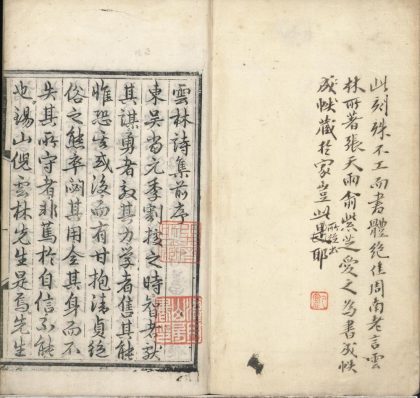 此刻殊不工而書體絶佳周南老言雲
林所著張天雨俞紫芝愛之為書成帙
成帙藏於家豈此是耶
所説云
雲林詩集前序
東吳當元季割據之時智者献
其謀勇者効其力學者售其能
惟恐其或後而有甘抱清貞絶
俗之態卒閟其用全其身而不
失其所守者非篤於自信不能
也錫山倪雲林先生是焉先生